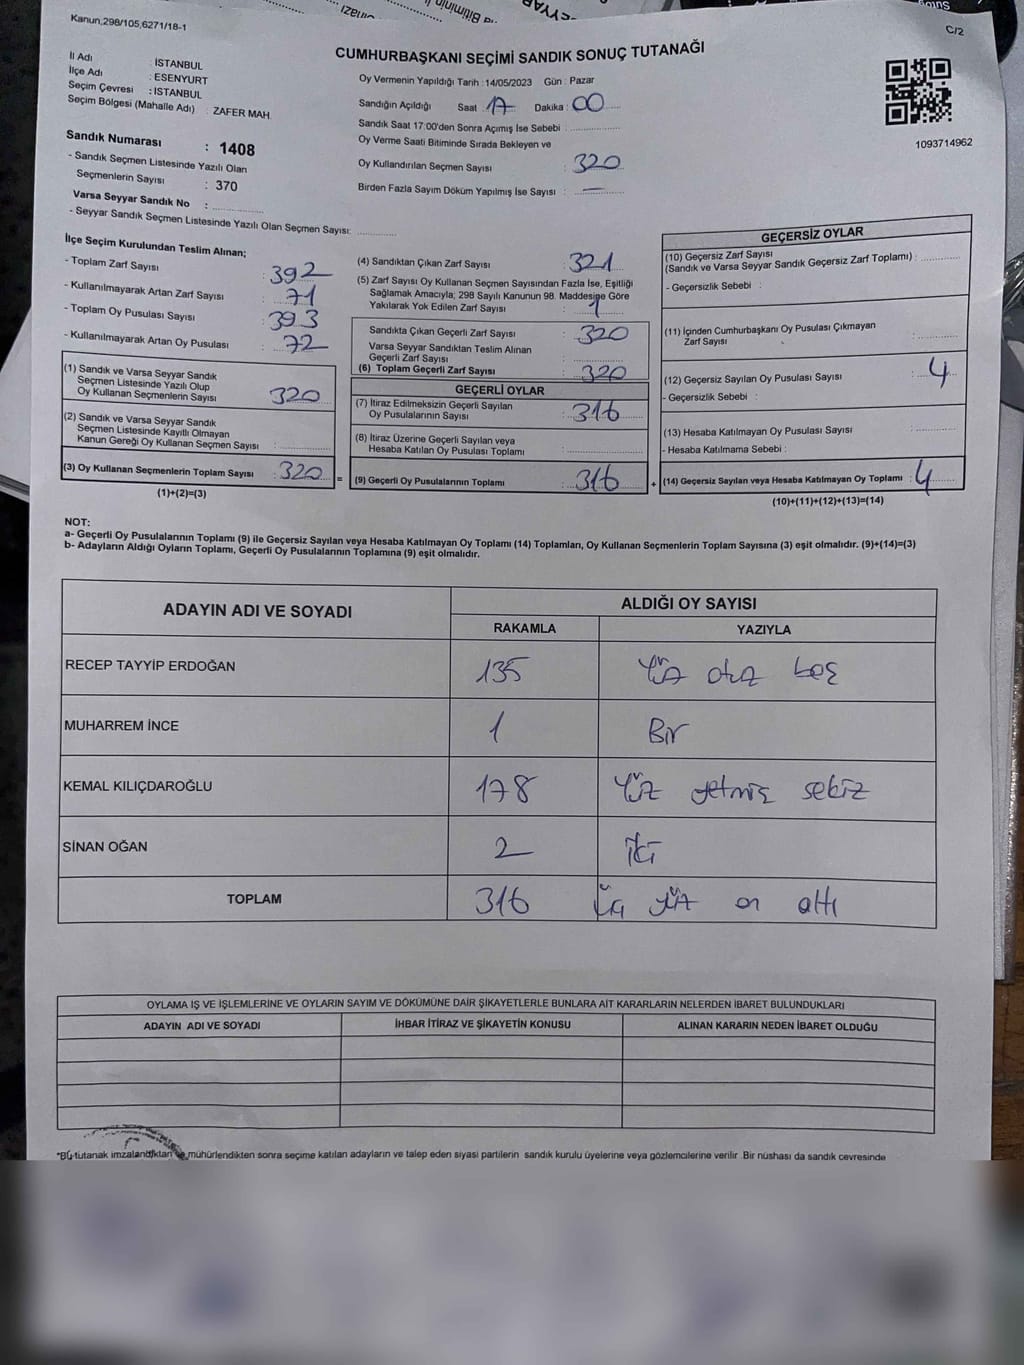 Kanun,298/105,6271/18-1
C/2
CUMHURBAŞKANI SEÇİMİ SANDIK SONUÇ TUTANAĞI
İl Adı : İSTANBUL
İlçe Adı : ESENYURT
Seçim Çevresi : İSTANBUL
Seçim Bölgesi (Mahalle Adı) : ZAFER MAH.
Sandık Numarası : 1408
- Sandık Seçmen Listesinde Yazılı Olan
Seçmenlerin Sayısı : 370
Varsa Seyyar Sandık No :
- Seyyar Sandık Seçmen Listesinde Yazılı Olan Seçmen Sayısı:
Oy Vermenin Yapıldığı Tarih : 14/05/2023 Gün : Pazar
Sandığın Açıldığı Saat : 17 Dakika : 00
Sandık Saat 17:00'den Sonra Açımış İse Sebebi :
Oy Verme Saati Bitiminde Sırada Bekleyen ve
Oy Kullandırılan Seçmen Sayısı : 320
Birden Fazla Sayım Döküm Yapılmış İse Sayısı : —
1093714962
İlçe Seçim Kurulundan Teslim Alınan;
- Toplam Zarf Sayısı : 392
- Kullanılmayarak Artan Zarf Sayısı : 71
- Toplam Oy Pusulası Sayısı : 393
- Kullanılmayarak Artan Oy Pusulası : 72
(1) Sandık ve Varsa Seyyar Sandık
Seçmen Listesinde Yazılı Olup
Oy Kullanan Seçmenlerin Sayısı : 320
(2) Sandık ve Varsa Seyyar Sandık
Seçmen Listesinde Kayıtlı Olmayan
Kanun Gereği Oy Kullanan Seçmen Sayısı :
(3) Oy Kullanan Seçmenlerin Toplam Sayısı : 320 =
(1)+(2)=(3)
(4) Sandıktan Çıkan Zarf Sayısı : 321
(5) Zarf Sayısı Oy Kullanan Seçmen Sayısından Fazla İse, Eşitliği
Sağlamak Amacıyla; 298 Sayılı Kanunun 98. Maddesine Göre
Yakılarak Yok Edilen Zarf Sayısı : 1
Sandıkta Çıkan Geçerli Zarf Sayısı : 320
Varsa Seyyar Sandıktan Teslim Alınan
Geçerli Zarf Sayısı :
(6) Toplam Geçerli Zarf Sayısı : 320
GEÇERLİ OYLAR
(7) İtiraz Edilmeksizin Geçerli Sayılan
Oy Pusulalarının Sayısı : 316
(8) İtiraz Üzerine Geçerli Sayılan veya
Hesaba Katılan Oy Pusulası Toplamı :
(9) Geçerli Oy Pusulalarının Toplamı : 316 +
GEÇERSİZ OYLAR
(10) Geçersiz Zarf Sayısı
(Sandık ve Varsa Seyyar Sandık Geçersiz Zarf Toplamı) :
- Geçersizlik Sebebi :
(11) İçinden Cumhurbaşkanı Oy Pusulası Çıkmayan
Zarf Sayısı :
(12) Geçersiz Sayılan Oy Pusulası Sayısı : 4
- Geçersizlik Sebebi :
(13) Hesaba Katılmayan Oy Pusulası Sayısı :
- Hesaba Katılmama Sebebi :
(14) Geçersiz Sayılan veya Hesaba Katılmayan Oy Toplamı : 4
(10)+(11)+(12)+(13)=(14)
NOT:
a- Geçerli Oy Pusulalarının Toplamı (9) ile Geçersiz Sayılan veya Hesaba Katılmayan Oy Toplamı (14) Toplamları, Oy Kullanan Seçmenlerin Toplam Sayısına (3) eşit olmalıdır. (9)+(14)=(3)
b- Adayların Aldığı Oyların Toplamı, Geçerli Oy Pusulalarının Toplamına (9) eşit olmalıdır.
ADAYIN ADI VE SOYADI
ALDIĞI OY SAYISI
RAKAMLA YAZIYLA
RECEP TAYYİP ERDOĞAN 135 Yüz otuz beş
MUHARREM İNCE 1 Bir
KEMAL KILIÇDAROĞLU 178 Yüz yetmiş sekiz
SİNAN OĞAN 2 İki
TOPLAM 316 Üç yüz on altı
OYLAMA İŞ VE İŞLEMLERİNE VE OYLARIN SAYIM VE DÖKÜMÜNE DAİR ŞİKAYETLERLE BUNLARA AİT KARARLARIN NELERDEN İBARET BULUNDUKLARI
ADAYIN ADI VE SOYADI İHBAR İTİRAZ VE ŞİKAYETİN KONUSU ALINAN KARARIN NEDEN İBARET OLDUĞU
*Bu tutanak imzalandıktan ve mühürlendikten sonra seçime katılan adayların ve talep eden siyasi partilerin sandık kurulu üyelerine veya gözlemcilerine verilir. Bir nüshası da sandık çevresinde